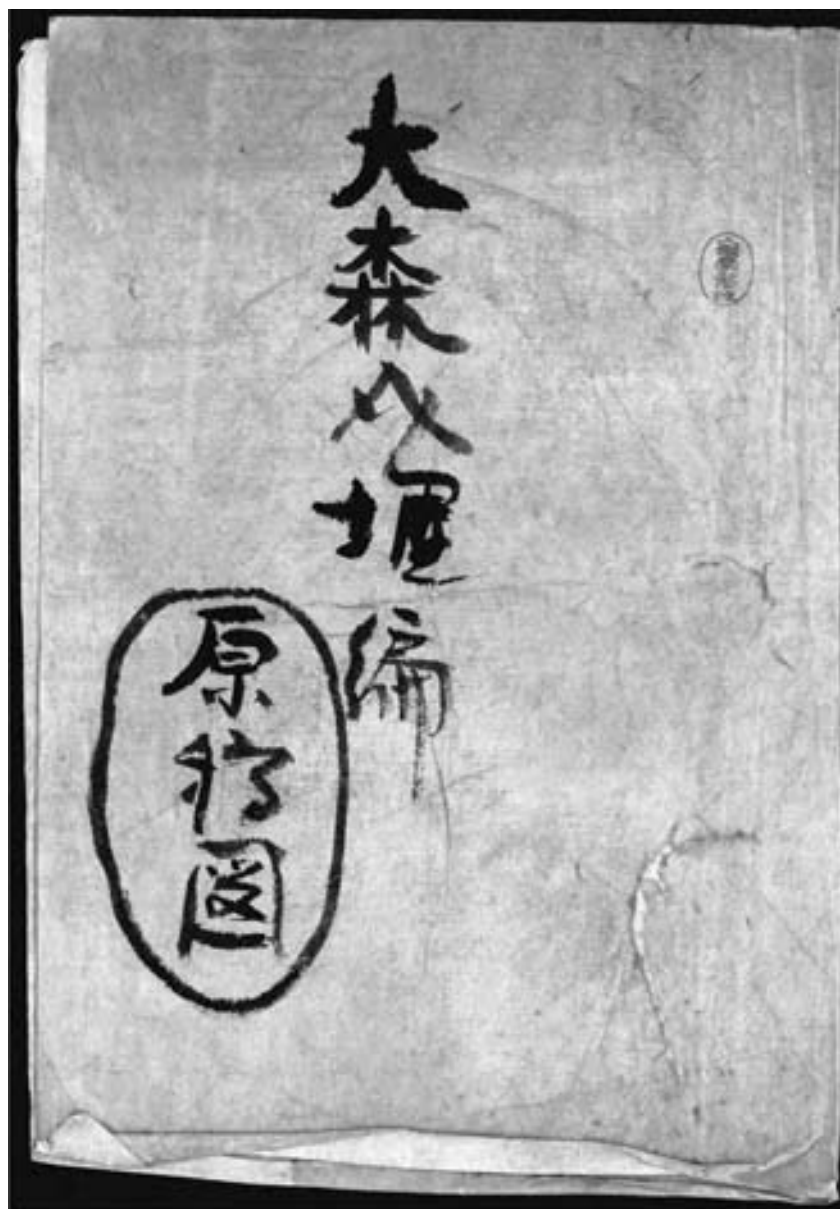 大森介墟編
原稿図